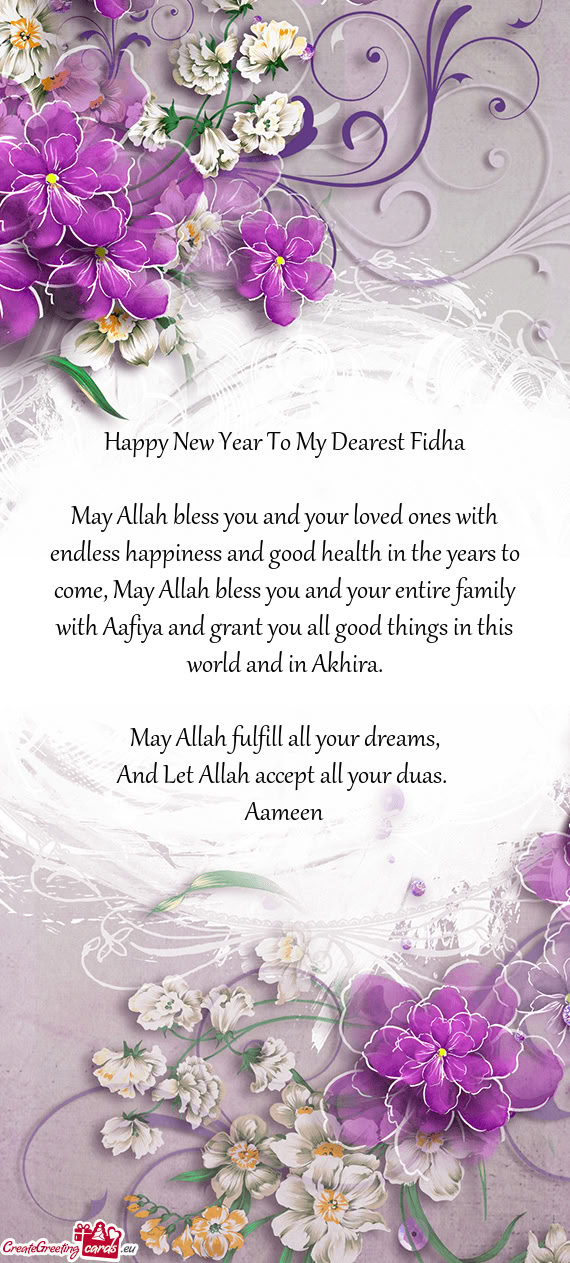 Happy New Year To My Dearest Fidha
May Allah bless you and your loved ones with
endless happiness and good health in the years to
come, May Allah bless you and your entire family
with Aafiya and grant you all good things in this
world and in Akhira.
May Allah fulfill all your dreams,
And Let Allah accept all your duas.
Aameen
CreateGreeting cards .eu